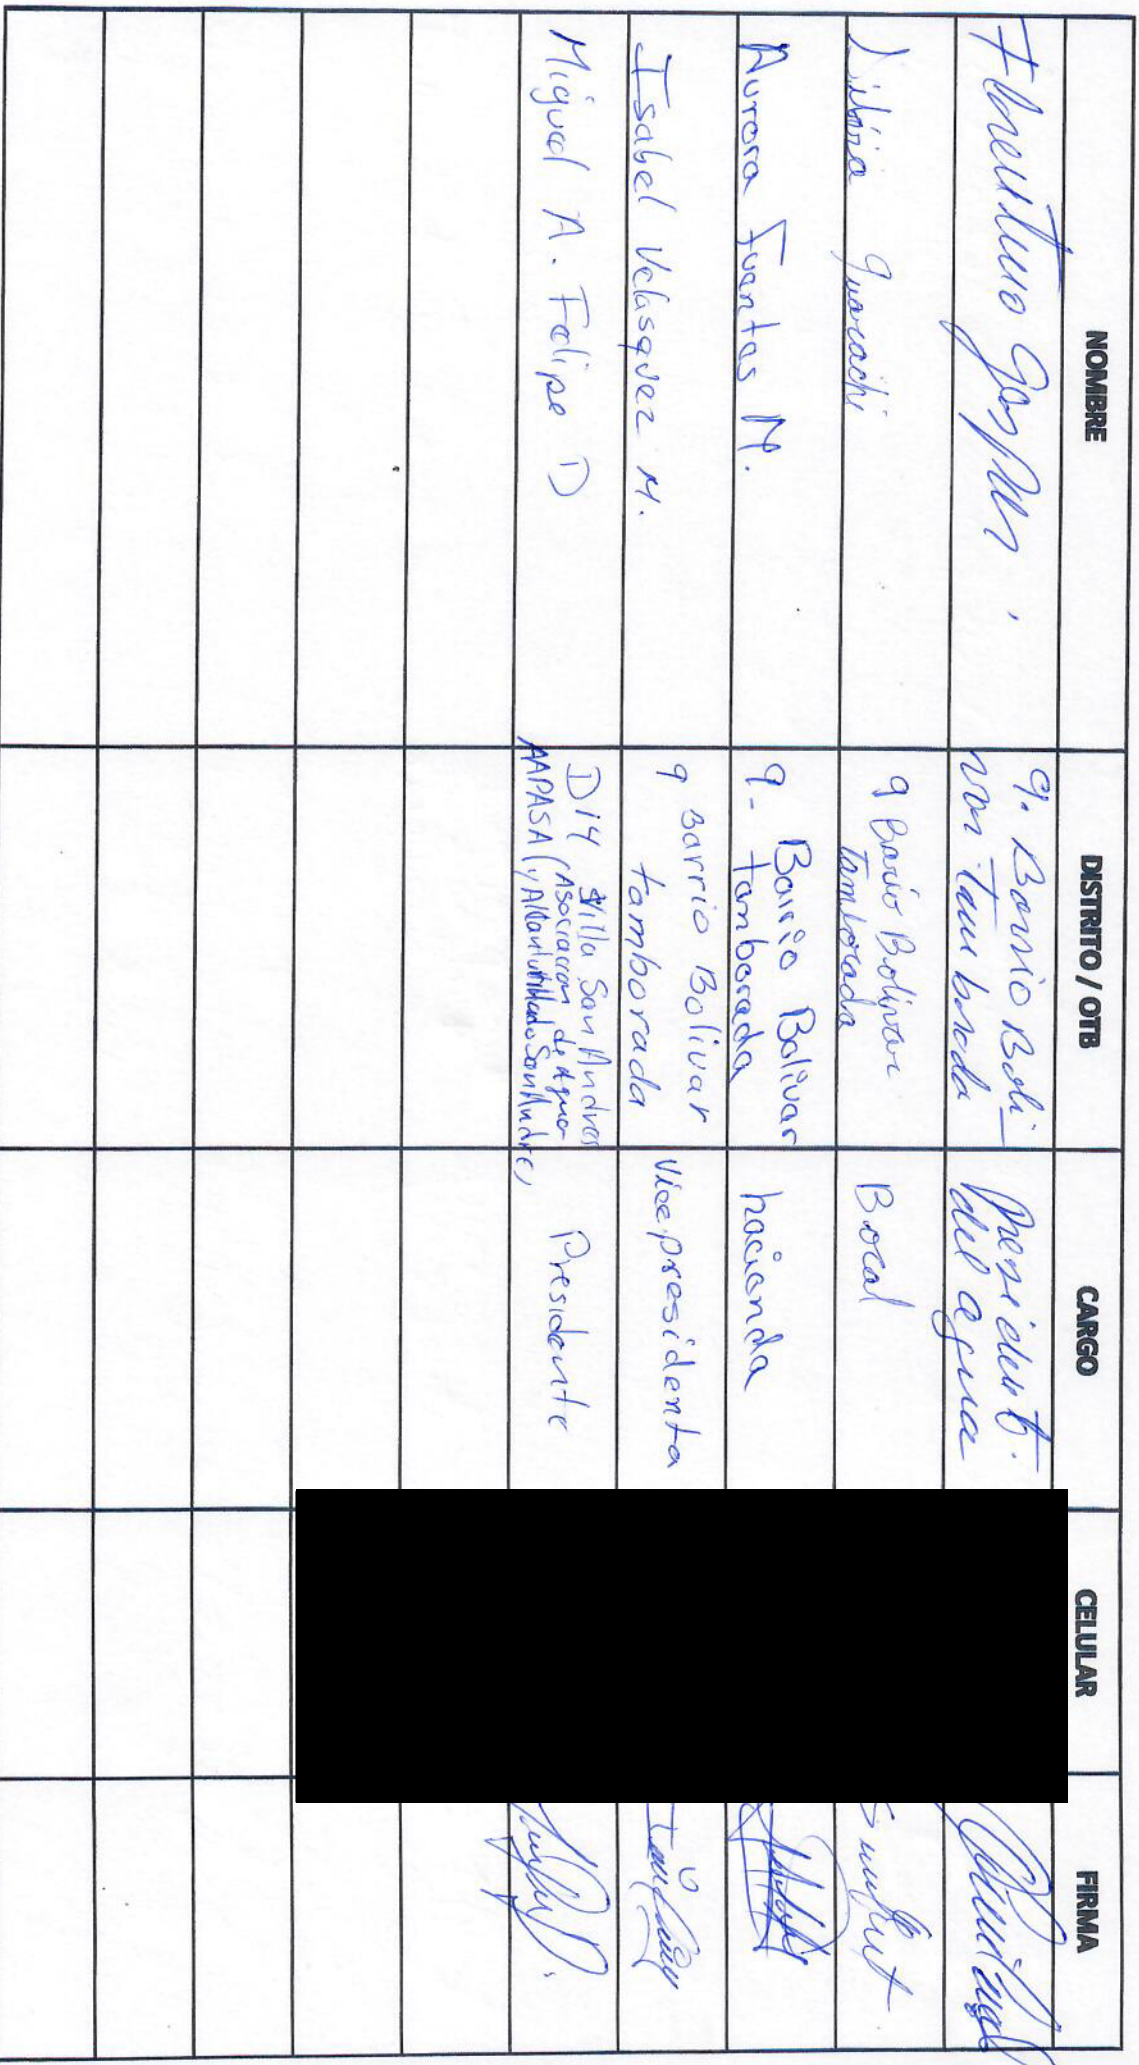 NOMBRE DISTRITO / OTB CARGO CELULAR FIRMA
Florentino Gaspar 9. Barrio Boli
var Tamborada President.
del agua
Libia Guarachi 9 Barrio Bolivar
Tamborada Bocal
Aurora Fuentes M. 9- Barrio Bolivar
Tamborada hacienda
Isabel Velasquez M. 9 Barrio Bolivar
tamborada Vicepresidenta
Miguel A. Felipe D D14 Villa San Andres
AAPASA (Asociacion de Agua
y Alcantarillado San Andres) Presidente